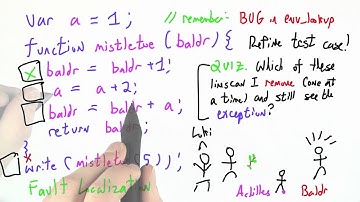 var a = 1;
// remember: BUG in env_lookup
function mistletoe (baldr) {
Refine test case!
x baldr = baldr + 1;
QUIZ. Which of these
a = a + 2;
lines can I remove (one at
a time) and still see the
baldr = baldr + a;
exception?
return baldr;
Loki
}
x
write (mistletoe(5));
Fault Localization
Achilles
Baldr